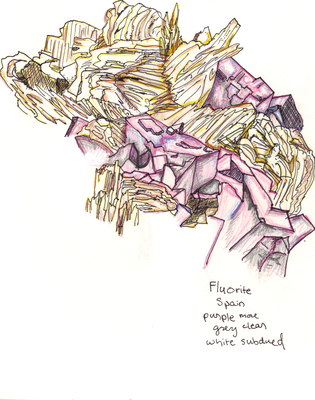 Fluorite
Spain
purple more
grey clean
white subdued